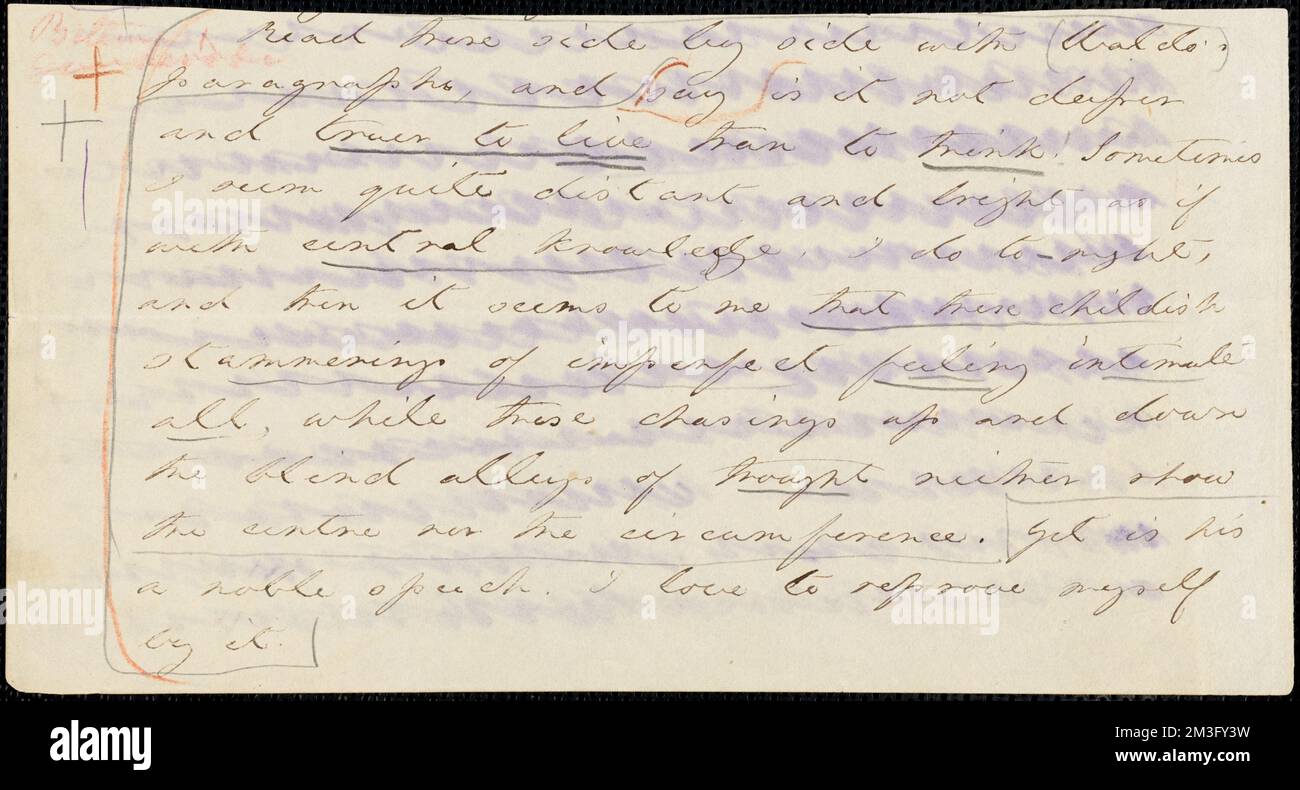 Read these side by side with (Waldo's)
paragraphs, and say is it not deeper
and truer to live than to think. Sometimes
I seem quite distant and bright as if
with central knowledge. I do to-night,
and then it seems to me that these childish
stammerings of imperfect feeling intimate
all, while those chasings up and down
the blind alleys of thought neither show
the centre nor the circumference. Yet is his
a noble speech. I love to reprove myself
by it.
alamy
Image ID: 2M3FY3W
www.alamy.com